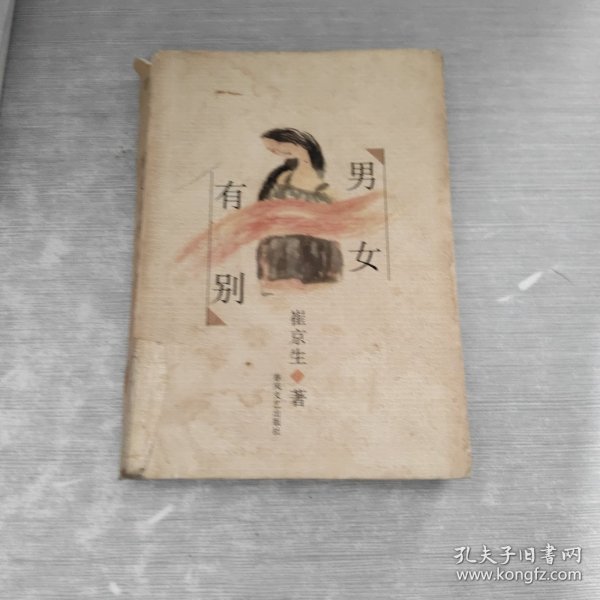 男女
有别
崔京生◆著
春风文艺出版社
孔夫子旧书网
www.kongfz.com